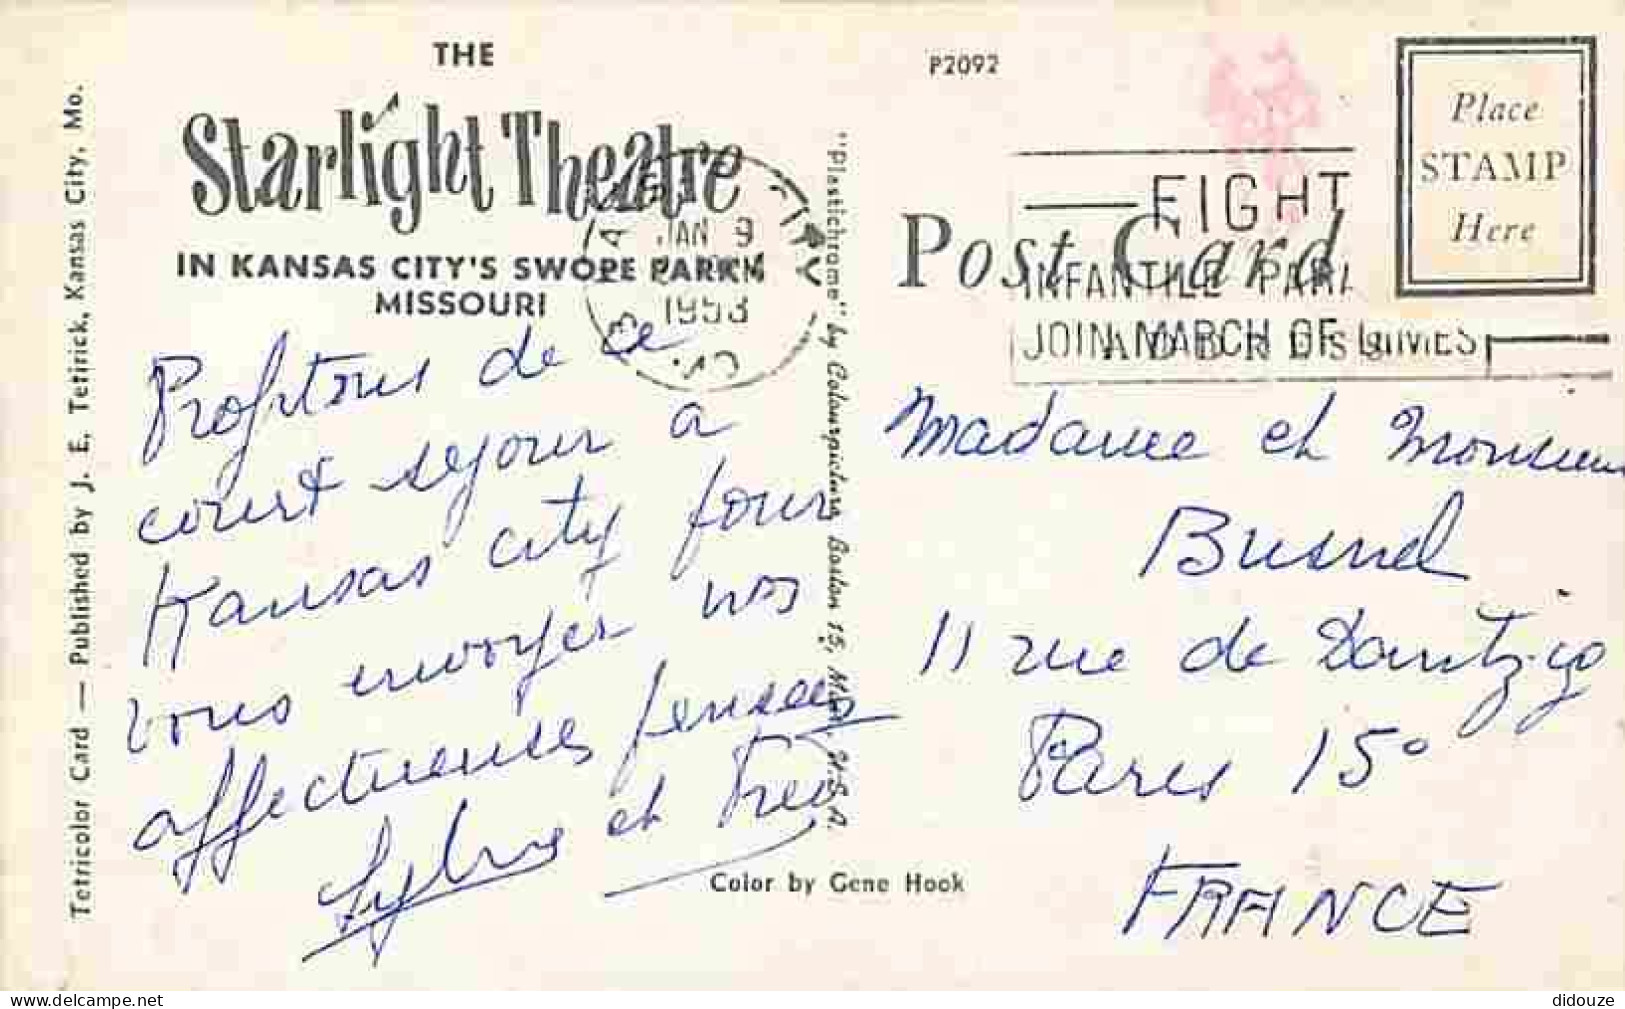 THE
Starlight Theatre
IN KANSAS CITY'S SWOPE PARK
MISSOURI
Profitons de ce
court séjour a
Kansas city pour
vous envoyer nos
affectueuses pensées
et Fred
Tetricolor Card — Published by J. E. Tetirick, Kansas City, Mo.
"Plastichrome" by Colourpicture, Boston 15, Mass., U.S.A.
Color by Gene Hook
P2092
Post Card
Place
STAMP
Here
JAN 9
1953
MO.
FIGHT
INFANTILE PARA
JOIN MARCH OF DIMES
Madame et Monsieur
Busnel
11 rue de Dantzig
Paris 15°
FRANCE
didouze